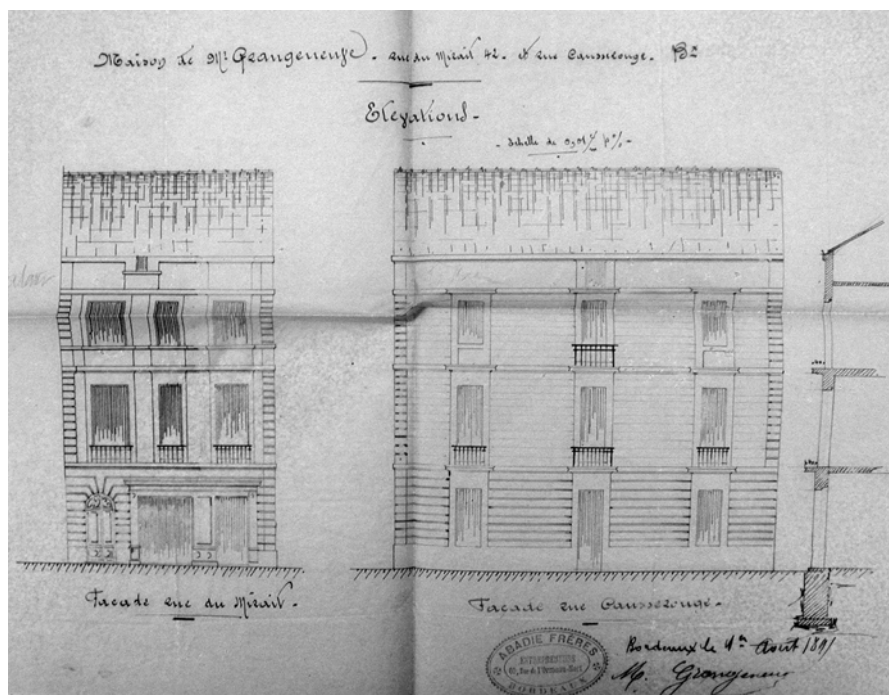 Maison de Mr Grangeneuve. rue du Mirail 42. et rue Causserouge. Bx
Elevations.
Echelle de 0,01
Façade rue du Mirail.
Façade rue Causserouge.
ABADIE FRÈRES
ENTREPRENEURS
BORDEAUX
Bordeaux le Août 1891
M. Grangeneuve